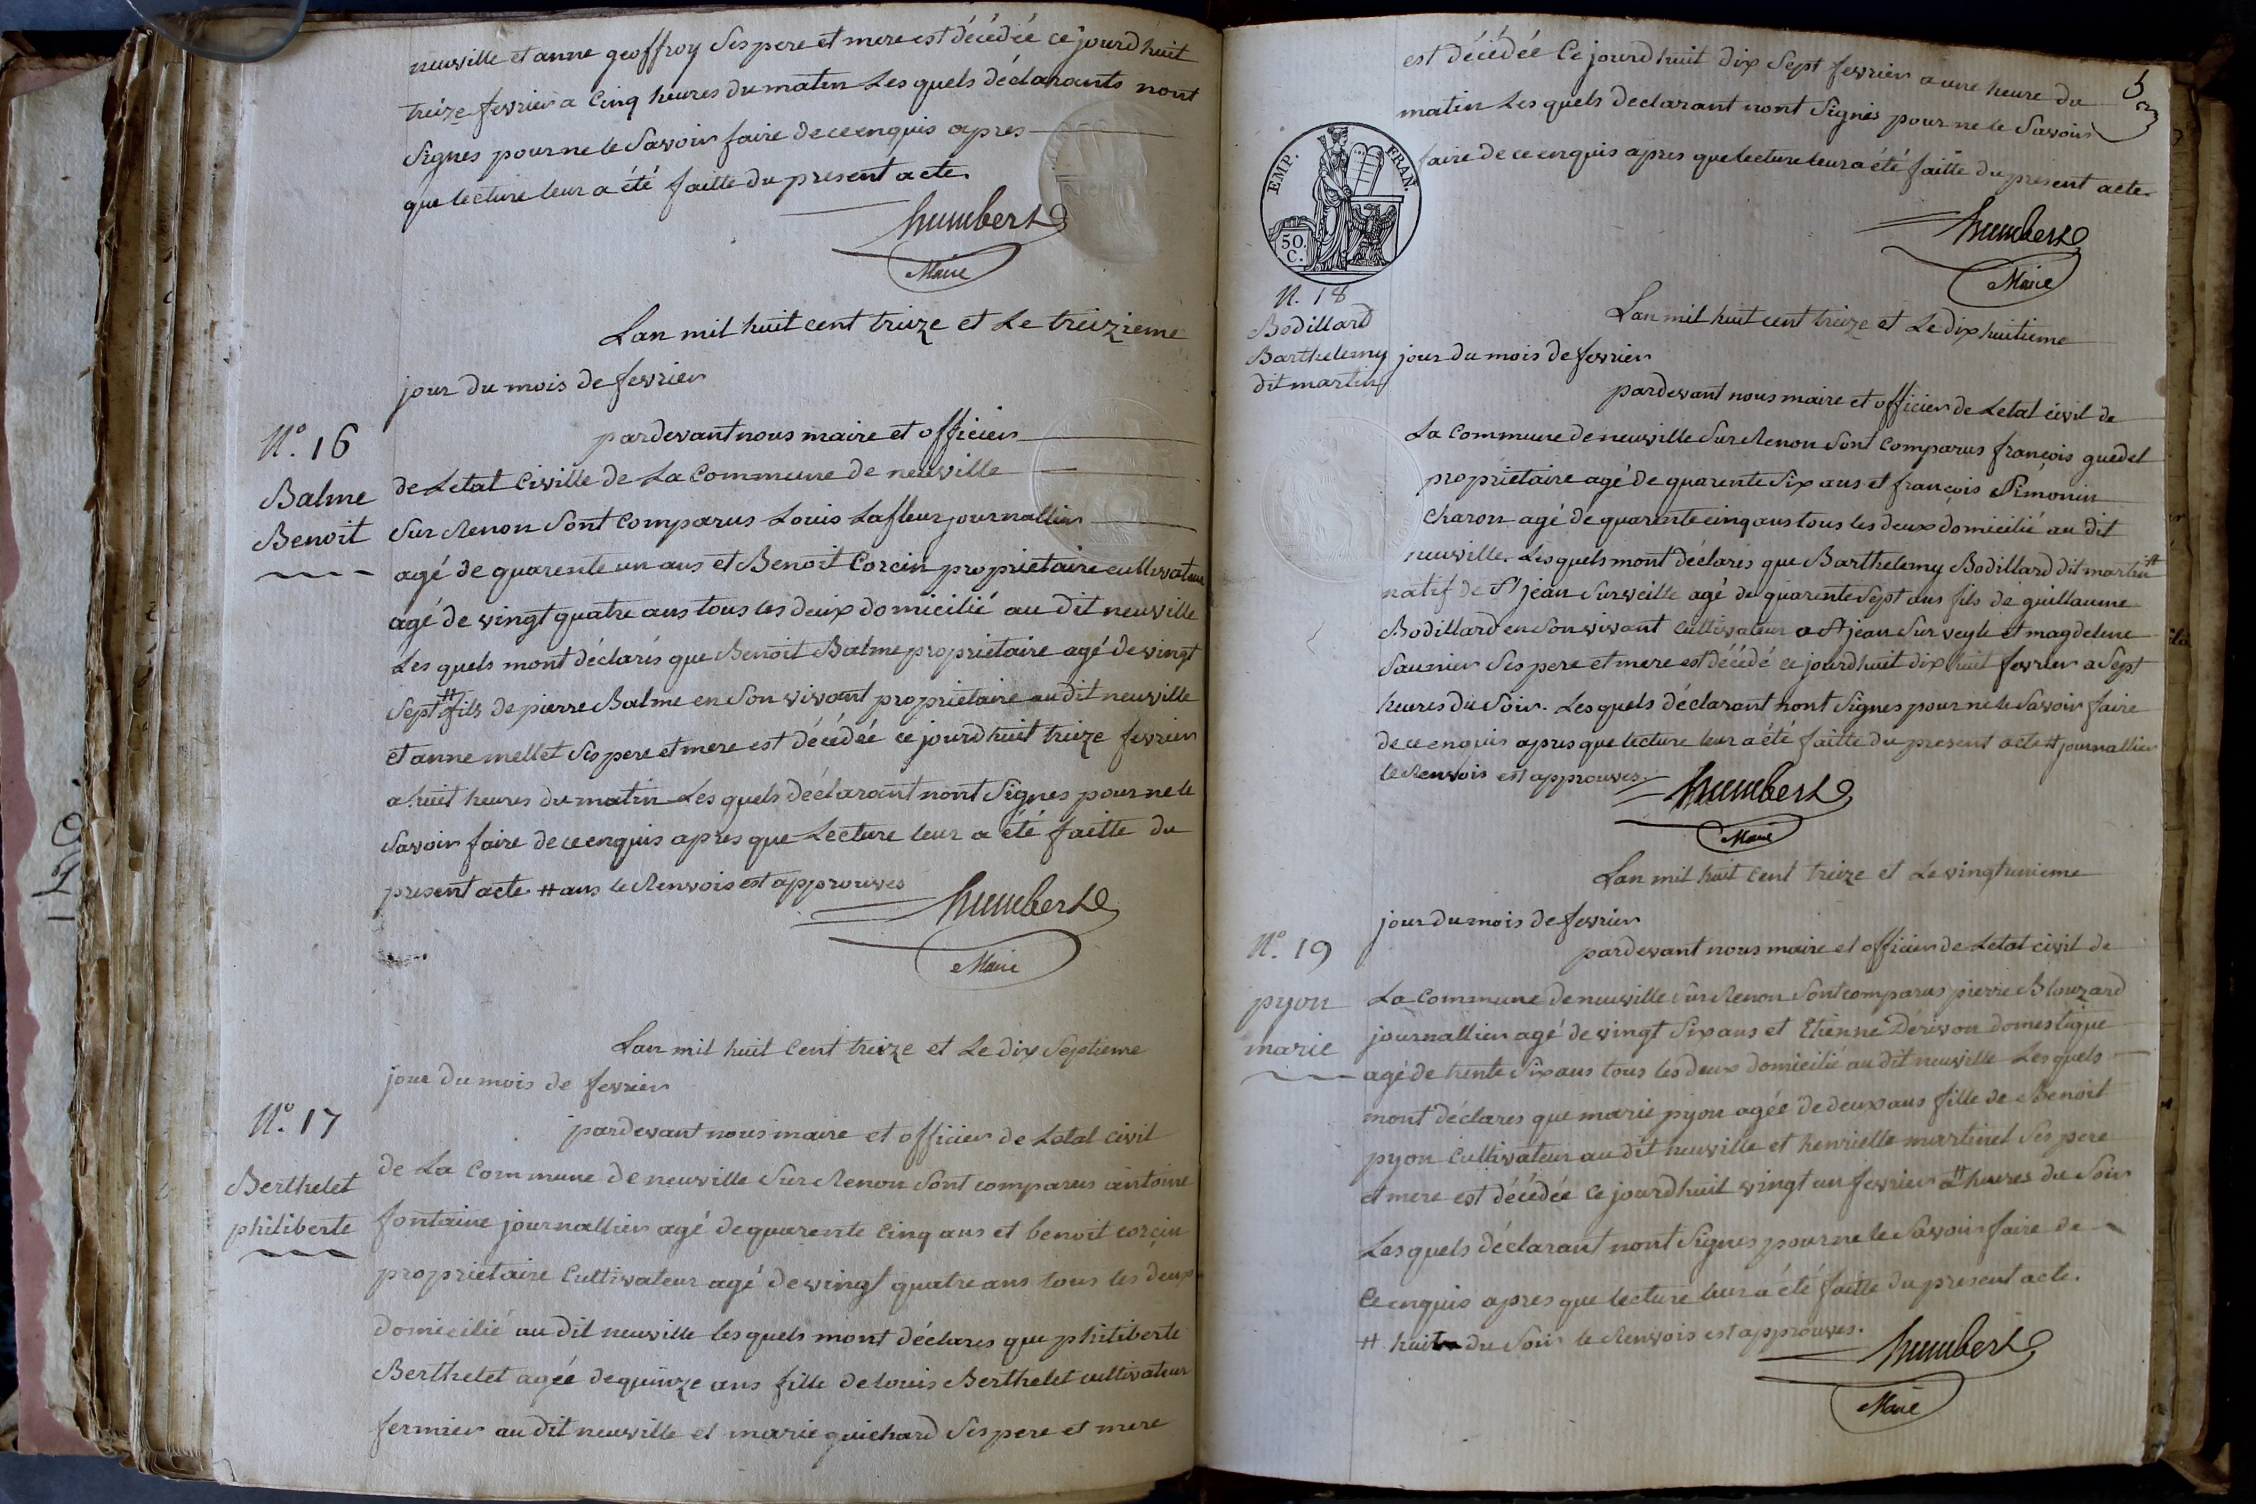 neuville et anne geoffroy Ses pere et mere est décédée ce jourdhuit
treize fevrier a Cinq heures du matin Les quels déclarants nont
Signes pour ne le Savoir faire de ce enquis apres
que lecture leur a été faitte du present acte.
humbert
Maire
Lan mil huit cent treize et Le treizieme
jour du mois de fevrier
N.º 16
Balme
Benoit
pardevant nous maire et officier
de Letat Civille de La Commune de neuville
Sur Renon Sont Comparus Louis Lafleur journallier
agé de quarente un ans et Benoit Corcin propriétaire cultivateur
agé de vingt quatre ans tous les deux domicilié au dit neuville
Les quels mont déclarés que Benoit Balme propriétaire agé de vingt
Sept # fils de pierre Balme en Son vivant propriétaire au dit neuville
et anne mellet Ses pere et mere est décédée ce jourdhuit treize fevrier
a huit heures du matin Les quels déclarant nont Signes pour ne le
Savoir faire de ce enquis apres que Lecture leur a été faitte du
present acte. # ans le Renvois est approuves
humbert
Maire
Lan mil huit Cent treize et Le dix Septieme
jour du mois de fevrier
N.º 17
Berthelet
philiberte
pardevant nous maire et officier de Letat civil
de La Commune de neuville Sur Renon Sont comparus antoine
fontaine journallier agé de quarente Cinq ans et benoit corcin
propriétaire Cultivateur agé de vingt quatre ans tous les deux
domicilié au dit neuville les quels mont déclares que philiberte
Berthelet agée de quinze ans fille de louis Berthelet cultivateur
fermier au dit neuville et marie guichard Ses pere et mere
5
est décédée Ce jourdhuit dix Sept fevrier a une heure du
matin Les quels declarant nont Signés pour ne le Savoir
faire de ce enquis apres que lecture leur a été faitte du present acte.
EMP. FRAN.
50.
C.
humbert
Maire
N. 18
Bodillard
Barthelemy
dit martin
Lan mil huit cent treize et Le dix huitieme
jour du mois de fevrier
pardevant nous maire et officier de Letat civil de
La Commune de neuville Sur Renon Sont Comparus françois guedel
propriétaire agé de quarente Six ans et françois Simonin
Charon agé de quarente cinq ans tous les deux domicilié au dit
neuville. Les quels mont déclarés que Barthelemy Bodillard dit martin #
natif de St jean Surveille agé de quarente Sept ans fils de guillaume
Bodillard en Son vivant Cultivateur a St jean Sur veyle et magdelene
Saunier Ses pere et mere est décédé ce jourdhuit dix huit fevrier a Sept
heures du Soir. Les quels déclarant nont Signes pour ne le Savoir faire
de ce enquis apres que lecture leur a été faitte du present acte # journallier
le Renvois est approuves.
humbert
Maire
Lan mil huit Cent treize et Le vingtunieme
jour du mois de fevrier
N.º 19
pyon
marie
pardevant nous maire et officier de Letat civil de
La Commune de neuville Sur Renon Sont comparus pierre Blouzard
journallier agé de vingt Six ans et Etienne Dérison domestique
agé de trente Six ans tous les deux domicilié au dit neuville Les quels
mont déclares que marie pyon agée de deux ans fille de Benoit
pyon Cultivateur au dit neuville et henriette martinet Ses pere
et mere est décédée Ce jourdhuit vingt un fevrier a # heures du Soir
Les quels déclarant nont Signes pour ne le Savoir faire de
Ce enquis apres que lecture leur a été faitte du present acte.
# huit du Soir le Renvois est approuves.
humbert
Maire